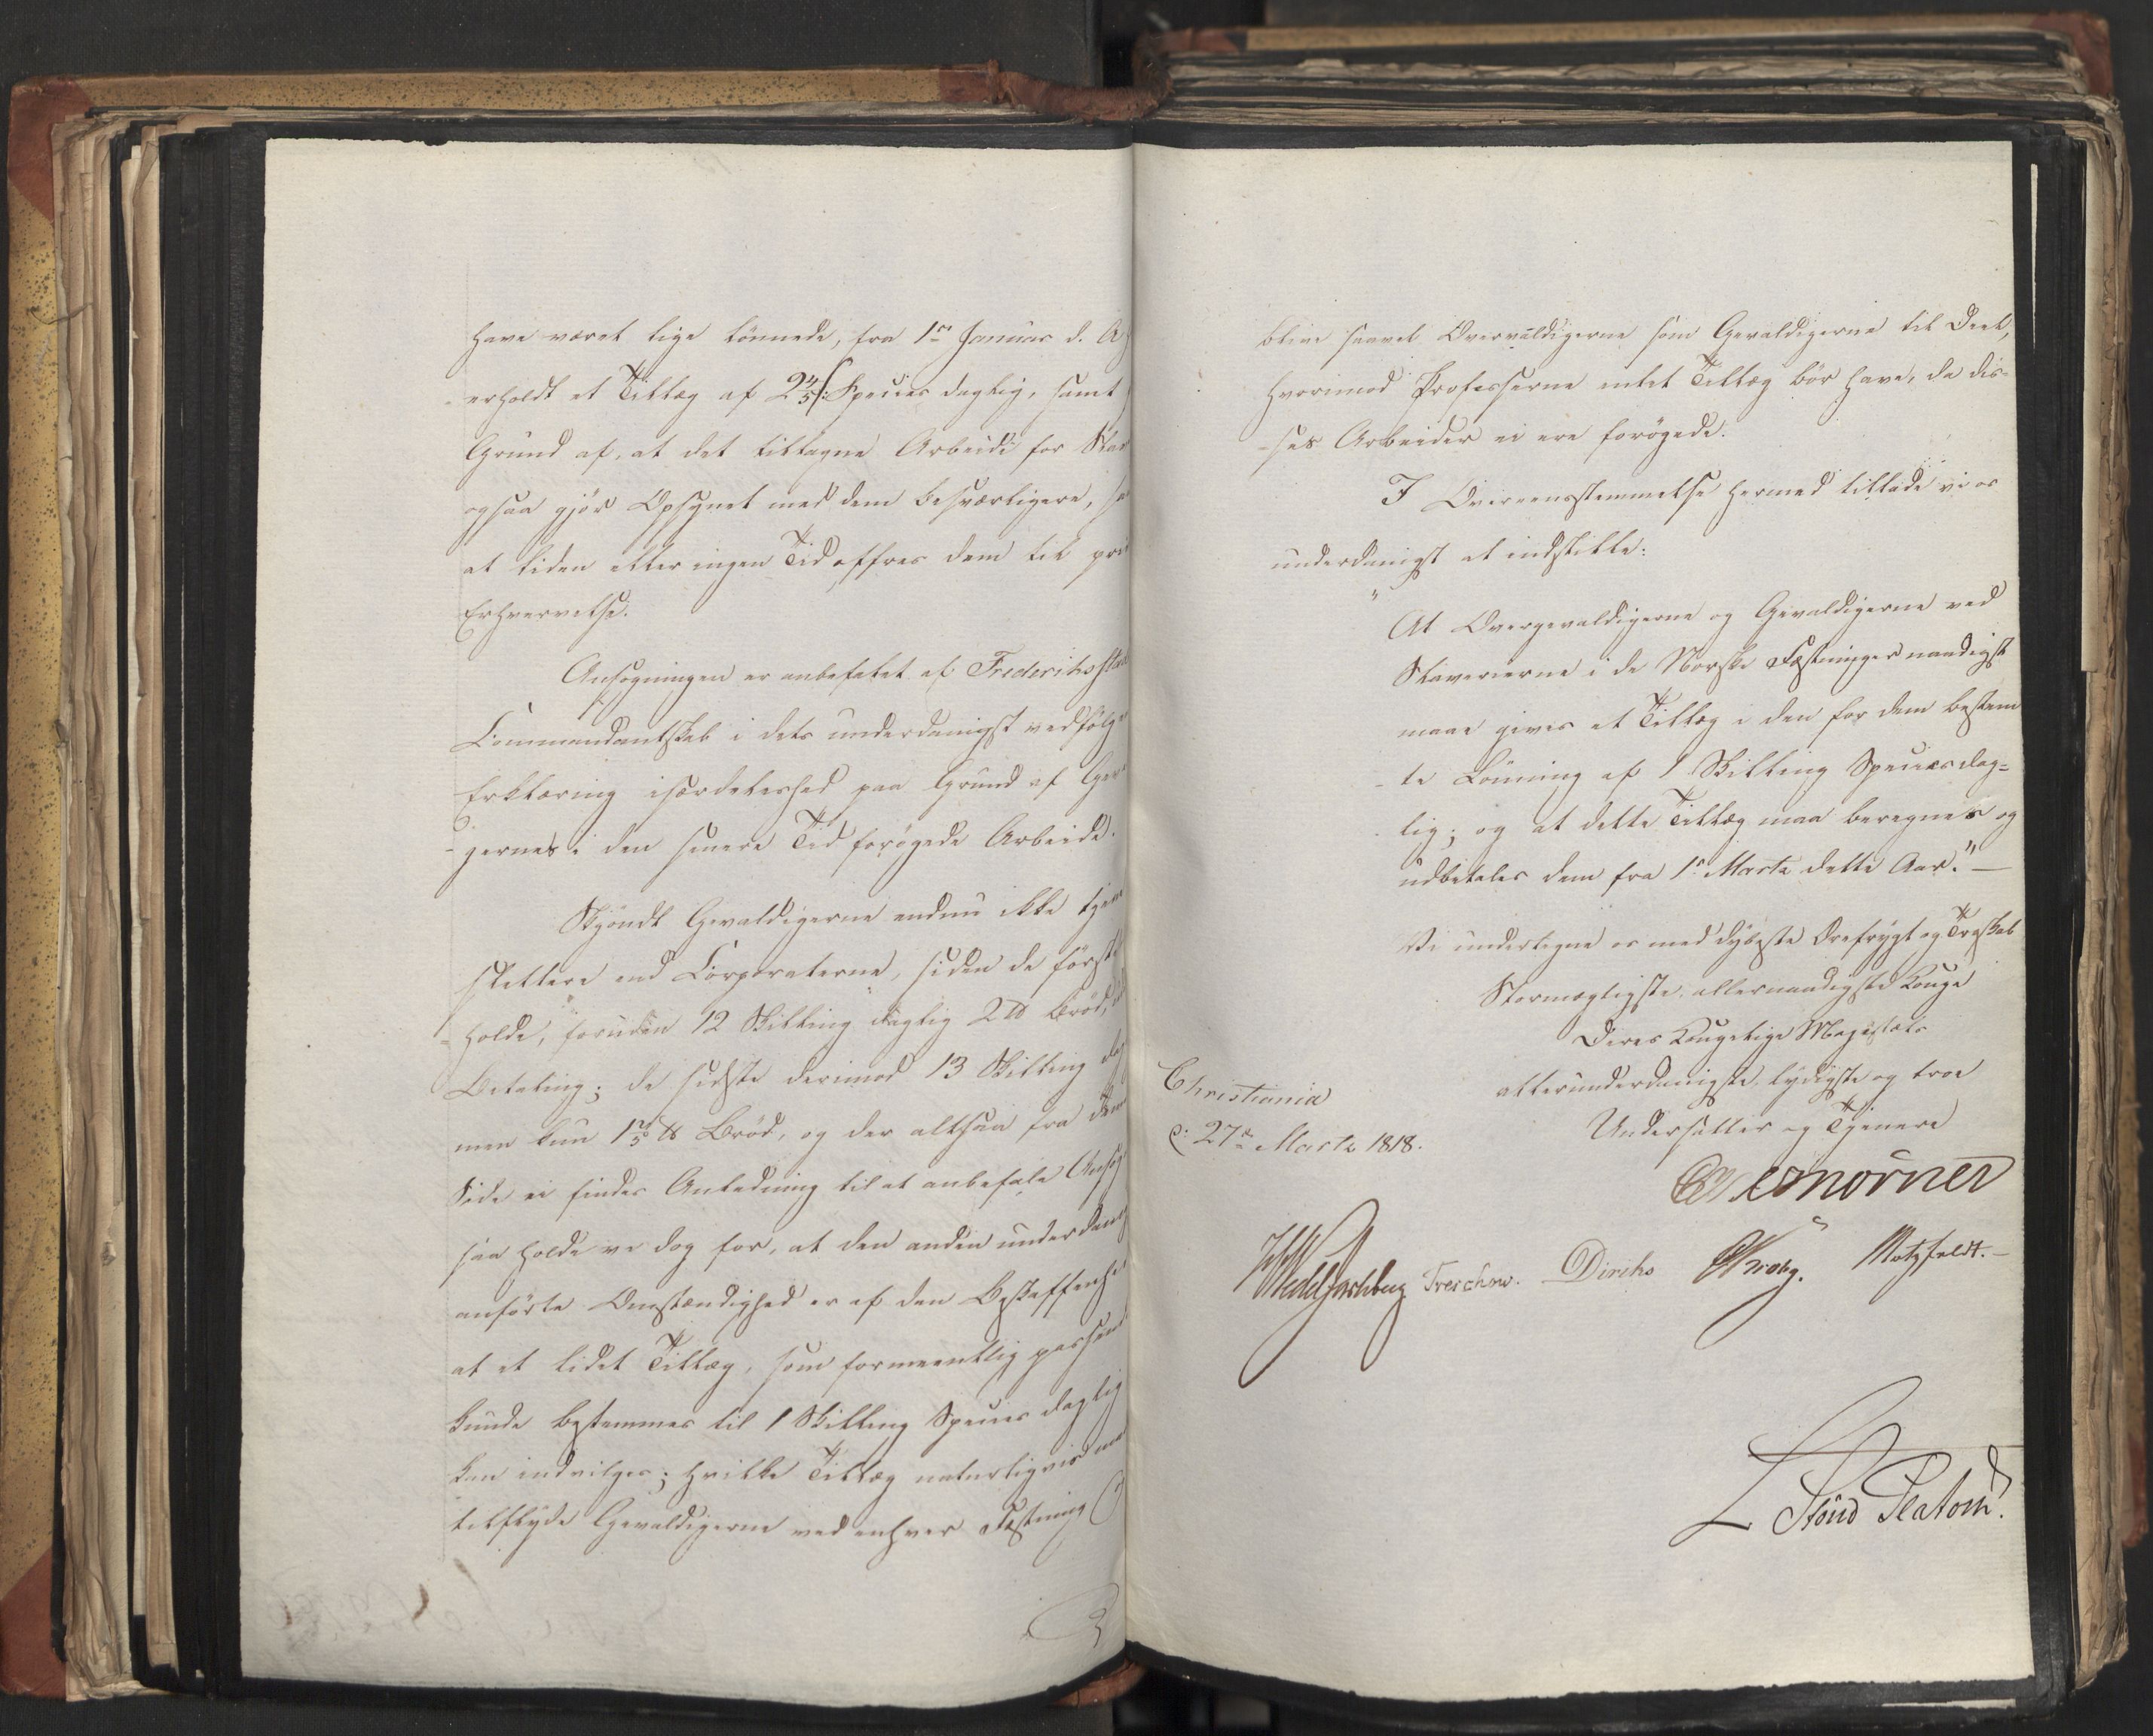 have været lige lönnede, fra 1ste Januar d. A
erholdt et Tillæg af 2 4/5 s: Species daglig, samt
Grund af, at det tiltagne Arbeide for Slav
ogsaa gjör Opsynet med dem besværligere, sa
at liden eller ingen Tid offres dem til pri
Erhvervelse.
Ansögningen er anbefalet af Frederiksstad
Commandantskab i dets underdanigst vedfölge
Erklæring isærdeleshed paa Grund af Gev
gernes i den senere Tid forögede Arbeide.
Skjöndt Gevaldigerne endnu ikke tjene
slettere end Corporalerne, siden de förste
holde, foruden 12 Skilling daglig 2 ℔ Bröd,
Betaling; de sidste derimod 13 Skilling dag
men kun 1 2/5 ℔ Bröd, og der altsaa fra denne
Side ei findes Anledning til at anbefale Ansög
saa holde vi dog for, at den anden underdanig
anförte Omstændighed er af den Beskaffenhe
at et lidet Tillæg, som formeentlig passend
kunde bestemmes til 1 Skilling Species daglig
kan indvilges; hvilke Tillæg naturligvis maa
tilflyde Gevaldigerne ved enhver Fæstning
blive saavel Overvaldigerne som Gevaldigerne til Deel,
hvorimod Profosserne intet Tillæg bör have, da dis-
-ses Arbeider ei ere forögede.
I Overeensstemmelse hermed tillade vi os
underdanigst at indstille:
"At Overgevaldigerne og Gevaldigerne ved
Slaverierne i de Norske Fæstninger naadigst
maae gives et Tillæg i den for dem bestem
-te Lönning af 1 Skilling Species dag-
lig; og at dette Tillæg maa beregnes og
udbetales dem fra 1ste Marts dette Aar." —
Vi undertegne os med dybeste Ærefrygt og Troskab
Stormægtigste, allernaadigste Konge
Deres Kongelige Majestæts
allerunderdanigste, lydigste og troe
Undersatter og Tjenere
Christiania
d: 27de Marts 1818.
Mörner
Wedel Jarlsberg Treschow. Diriks Krog. Motzfeldt. —
L Stoud Platou